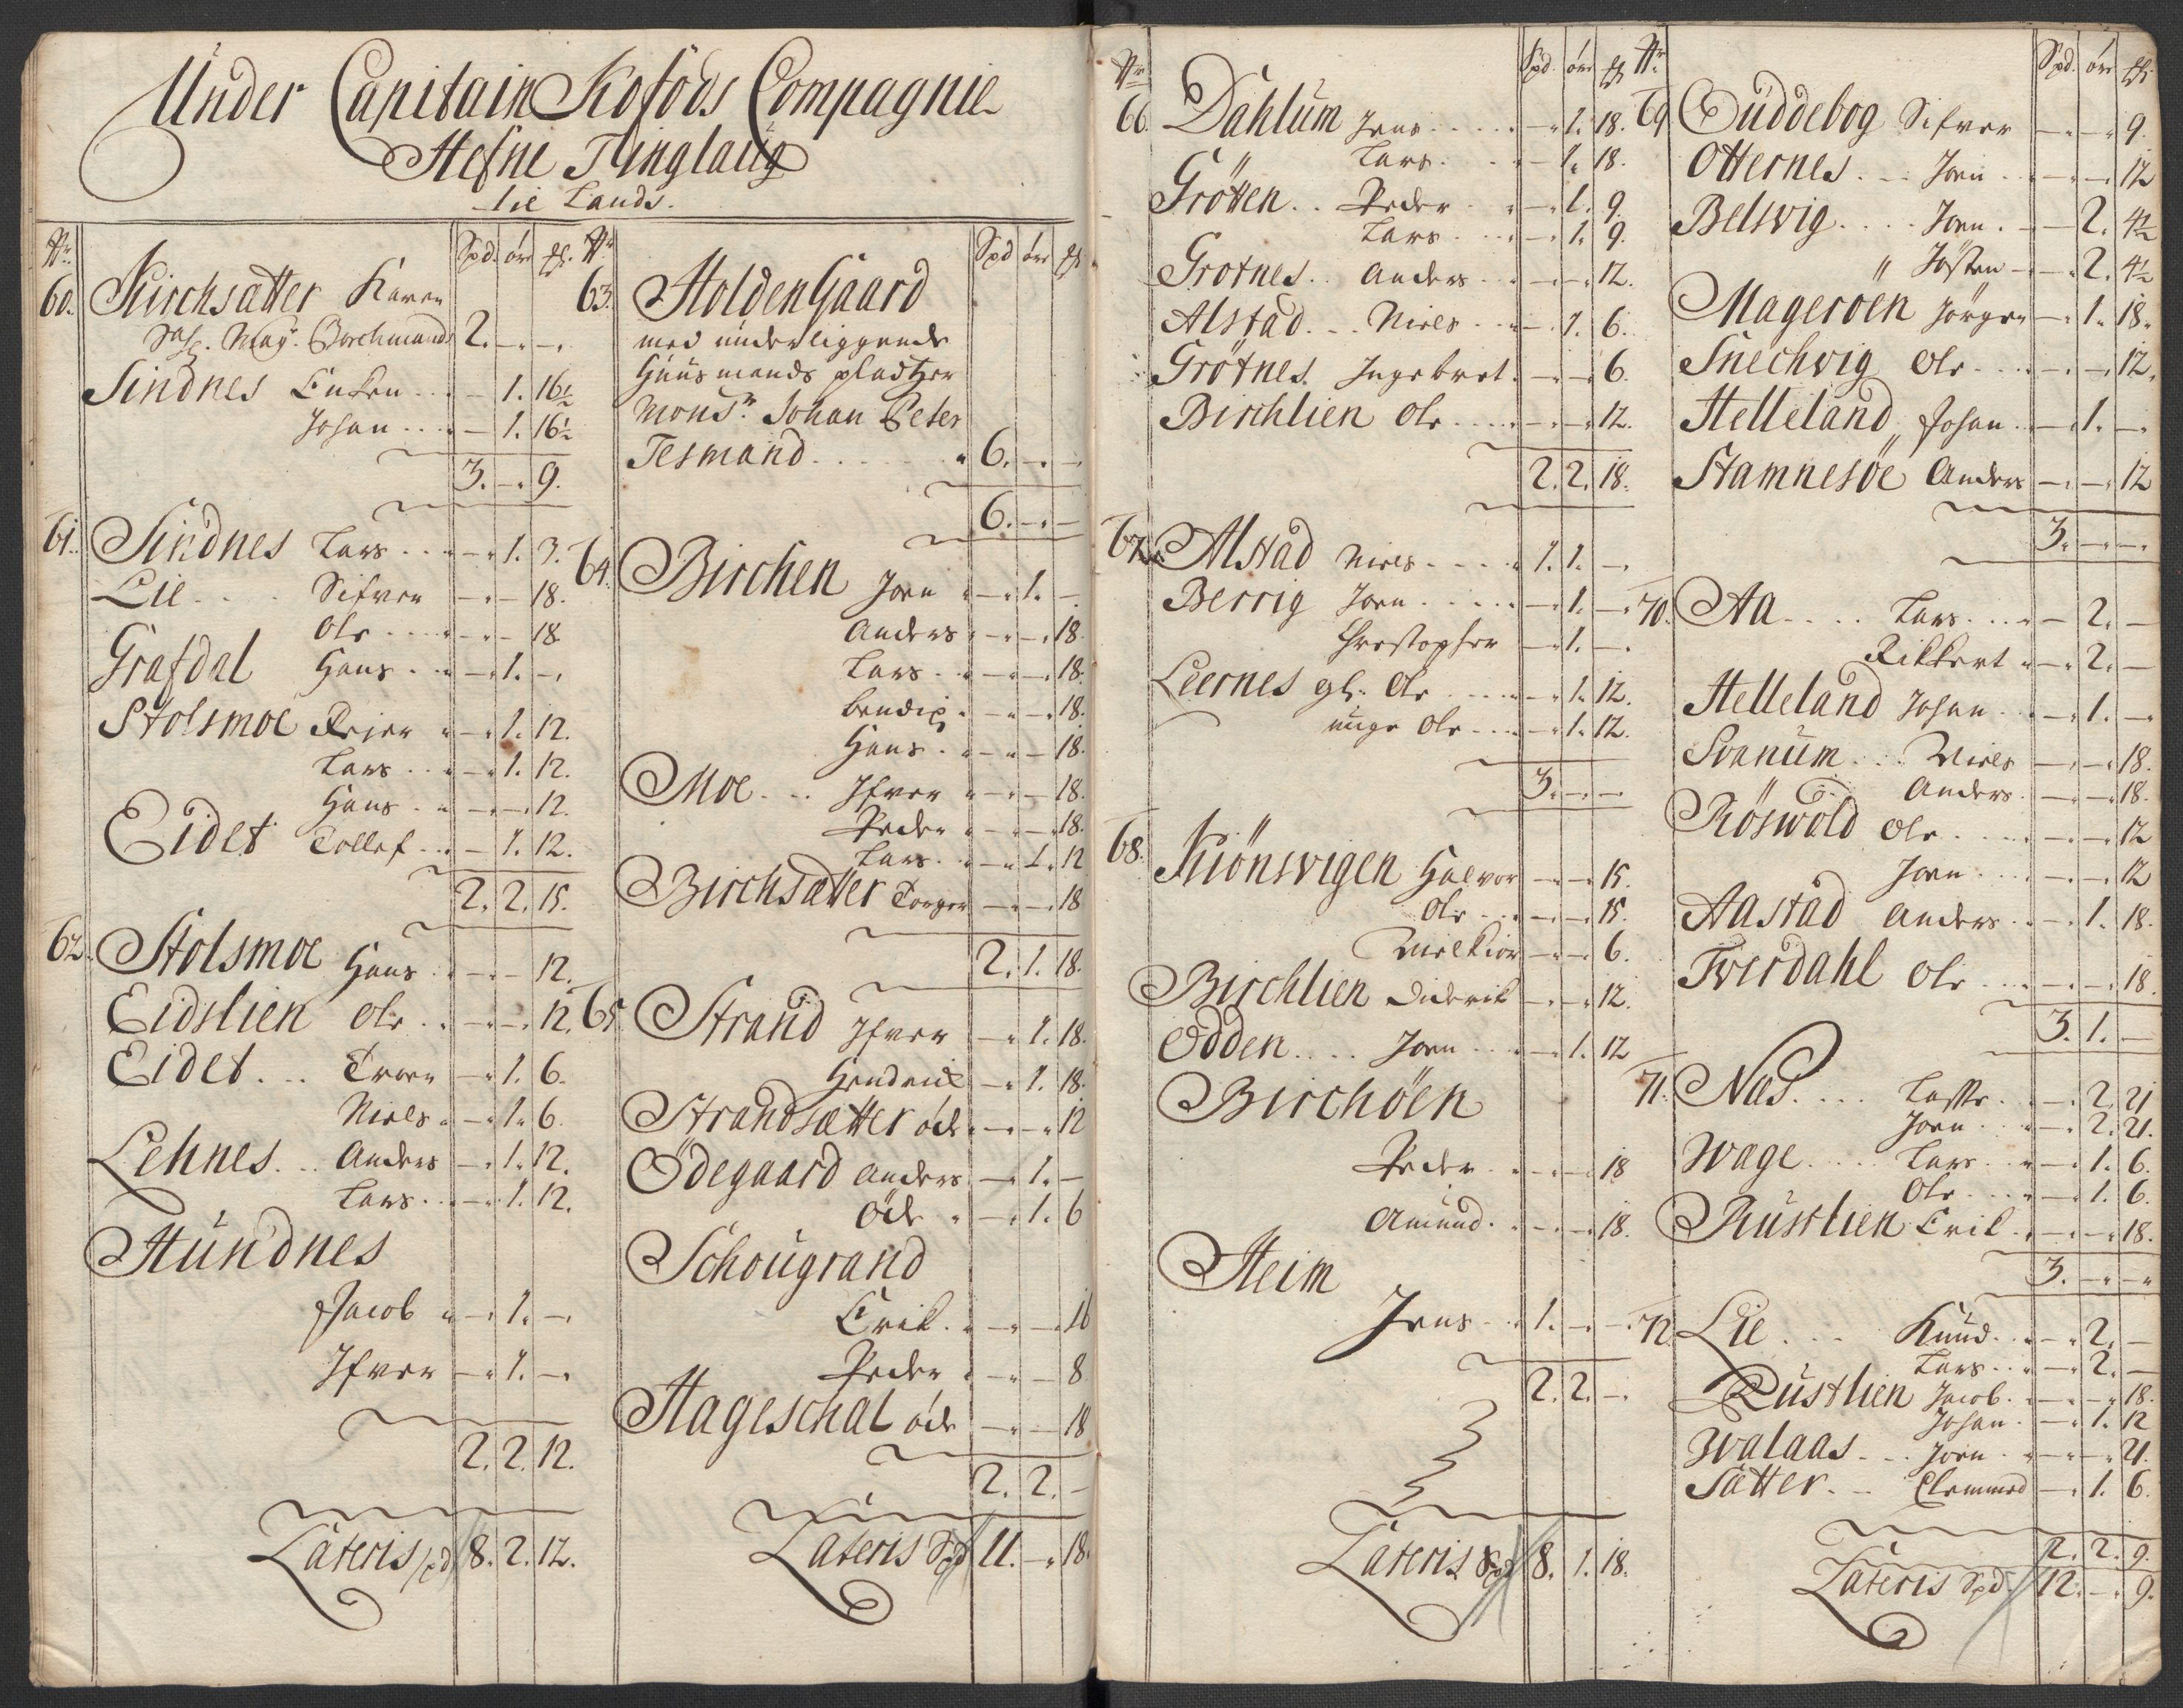 Under Capitain Kofods Compagnie
Hefne Tinglaug
til Lands.
Nr. Spd. ör ß.
60. Kirchsætter Karen
Sal. Mag. Borchmands 2. - -
Sindnes Enken - 1. 16½
Johan - 1. 16½
3. - 9.
61. Sindnes Lars - 1. 3.
Lie Sifver - - 18.
Ole - - 18
Grafdal Hans - 1. -
Stolsmoe Reier - 1. 12.
Lars - 1. 12.
Hans - - 12.
Eidet Tollef - 1. 12.
2. 2. 15.
62. Stolsmoe Hans - - 12.
Eidslien Ole - - 12.
Eidet Troen - 1. 6.
Niels - 1. 6.
Lehnes Anders - 1. 12.
Lars - 1. 12.
Stundnes
Jacob - 1. -
Ifver - 1. -
2. 2. 12.
Lateris spd 8. 2. 12.
Nr. Spd ör ß
63. Holden Gaard
med underliggende
Huusmands pladtzer
Monsr. Johan Peter
Tesmand 6. - -
6. - -
64. Birchen Joen - 1. -
Anders - - 18.
Lars - - 18.
Bendix - - 18.
Hans - - 18.
Moe Ifver - - 18.
Peder - - 18.
Lars - 1. 12
Birchsætter Torger - - 18
2. 1. 18.
65. Strand Ifver - 1. 18.
Hendrich - 1. 18.
Strandsætter öde - - 12
Ödegaard Anders - 1. -
Öde - 1. 6
Schougrand
Erik - - 16
Peder - - 8
Hageschal öde - - 18
2. 2. -
Lateris Spd 11. - 18.
Nr. Spd. ör ß
66. Dahlum Jens - 1. 18.
Lars - 1. 18.
Grötten Peder - 1. 9.
Lars - 1. 9.
Grotnes Anders - - 12.
Alstad Niels - 1. 6.
Grötnes Ingebret - - 6.
Birchlien Ole - - 12.
2. 2. 18.
67. Alstad Niels 1. 1. -
Berrig Joen - 1. -
Christopher - 1. -
Leernes gl. Ole - 1. 12.
unge Ole - 1. 12.
3. - -
68. Kiönsvigen Halvor - - 15.
Ole - - 15.
Melkior - - 6.
Birchlien Diderik - - 12.
Odden Joen - 1. 12
Birchöen
Peder - - 18
Amund - - 18.
Heim
Jens 1. - -
2. 2. -
Lateris Spd 8. 1. 18.
Nr. Spd. ör ß.
69 Guddebog Sifver - - 9.
Otternes Joen - - 12
Belsvig Joen - 2. 4½
Josten - 2. 4½
Mageröen Jörgen - 1. 18.
Snechvig Ole - - 12.
Helleland Johan - 1. -
Stamnesöe Anders - - 12
3. - -
70. Aa Lars - 2. -
Rikkert - 2. -
Helleland Johan - 1. -
Svanum Niels - - 18.
Anders - - 18.
Röswold Ole - - 12
Joen - - 12
Aastad Anders - 1. 18.
Tverdahl Ole - - 18.
3. 1. -
71. Næs Lasse - 2. 21
Joen - 2. 21.
Wage Lars - 1. 6.
Ole - 1. 6.
Rustlien Erik - - 18.
3. - -
72 Lie Knud - 2. -
Lars - 2. -
Rustlien Jacob - - 18.
Johan - 1. 12
Walaas Joen - - 21.
Sætter Clemmed - 1. 6.
2. 2. 9.
Lateris Spd. 12. - 9.